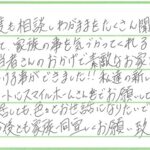 度も相談しわがままをたくさん聞
て、家族の事を気づかってくれる
当者さんのおかげで素敵なお家
ける事ができました!!私達の新し
ートにスマイルホームさんをお願いして
しても、色々とお世話になりたいで
後とも家族同宜しくお願い致